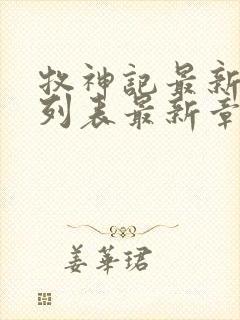 牧神記最新
列表最新章
姜華珺